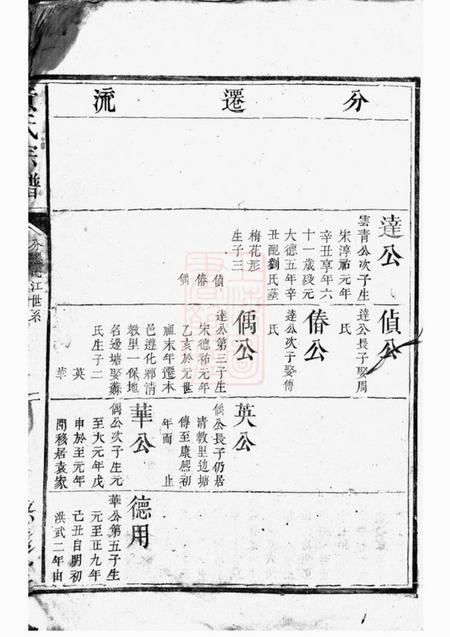 分遷流
達公
雲青公次子生
宋淳祐元年
辛丑享年六
十一歲殁元
大德五年辛
丑配劉氏墓
梅花形
生子三
偵
偆
偊
偵公
達公長子娶周
氏
偆公
達公次子娶傅
氏
偊公
達公第三子生
宋德祐元年
乙亥於元世
祖末年遷本
邑遵化鄉清
教里一保地
名邊塘娶蘇
氏生子二
英
華
英公
偊公長子仍居
清教里边塘
傳至康熙初
年而止
華公
偊公次子生元
至大元年戊
申於至元年
間移居袁家
德用
華公第五子生
元至正九年
己丑自明初
洪武二年由
氏宗譜
江世系